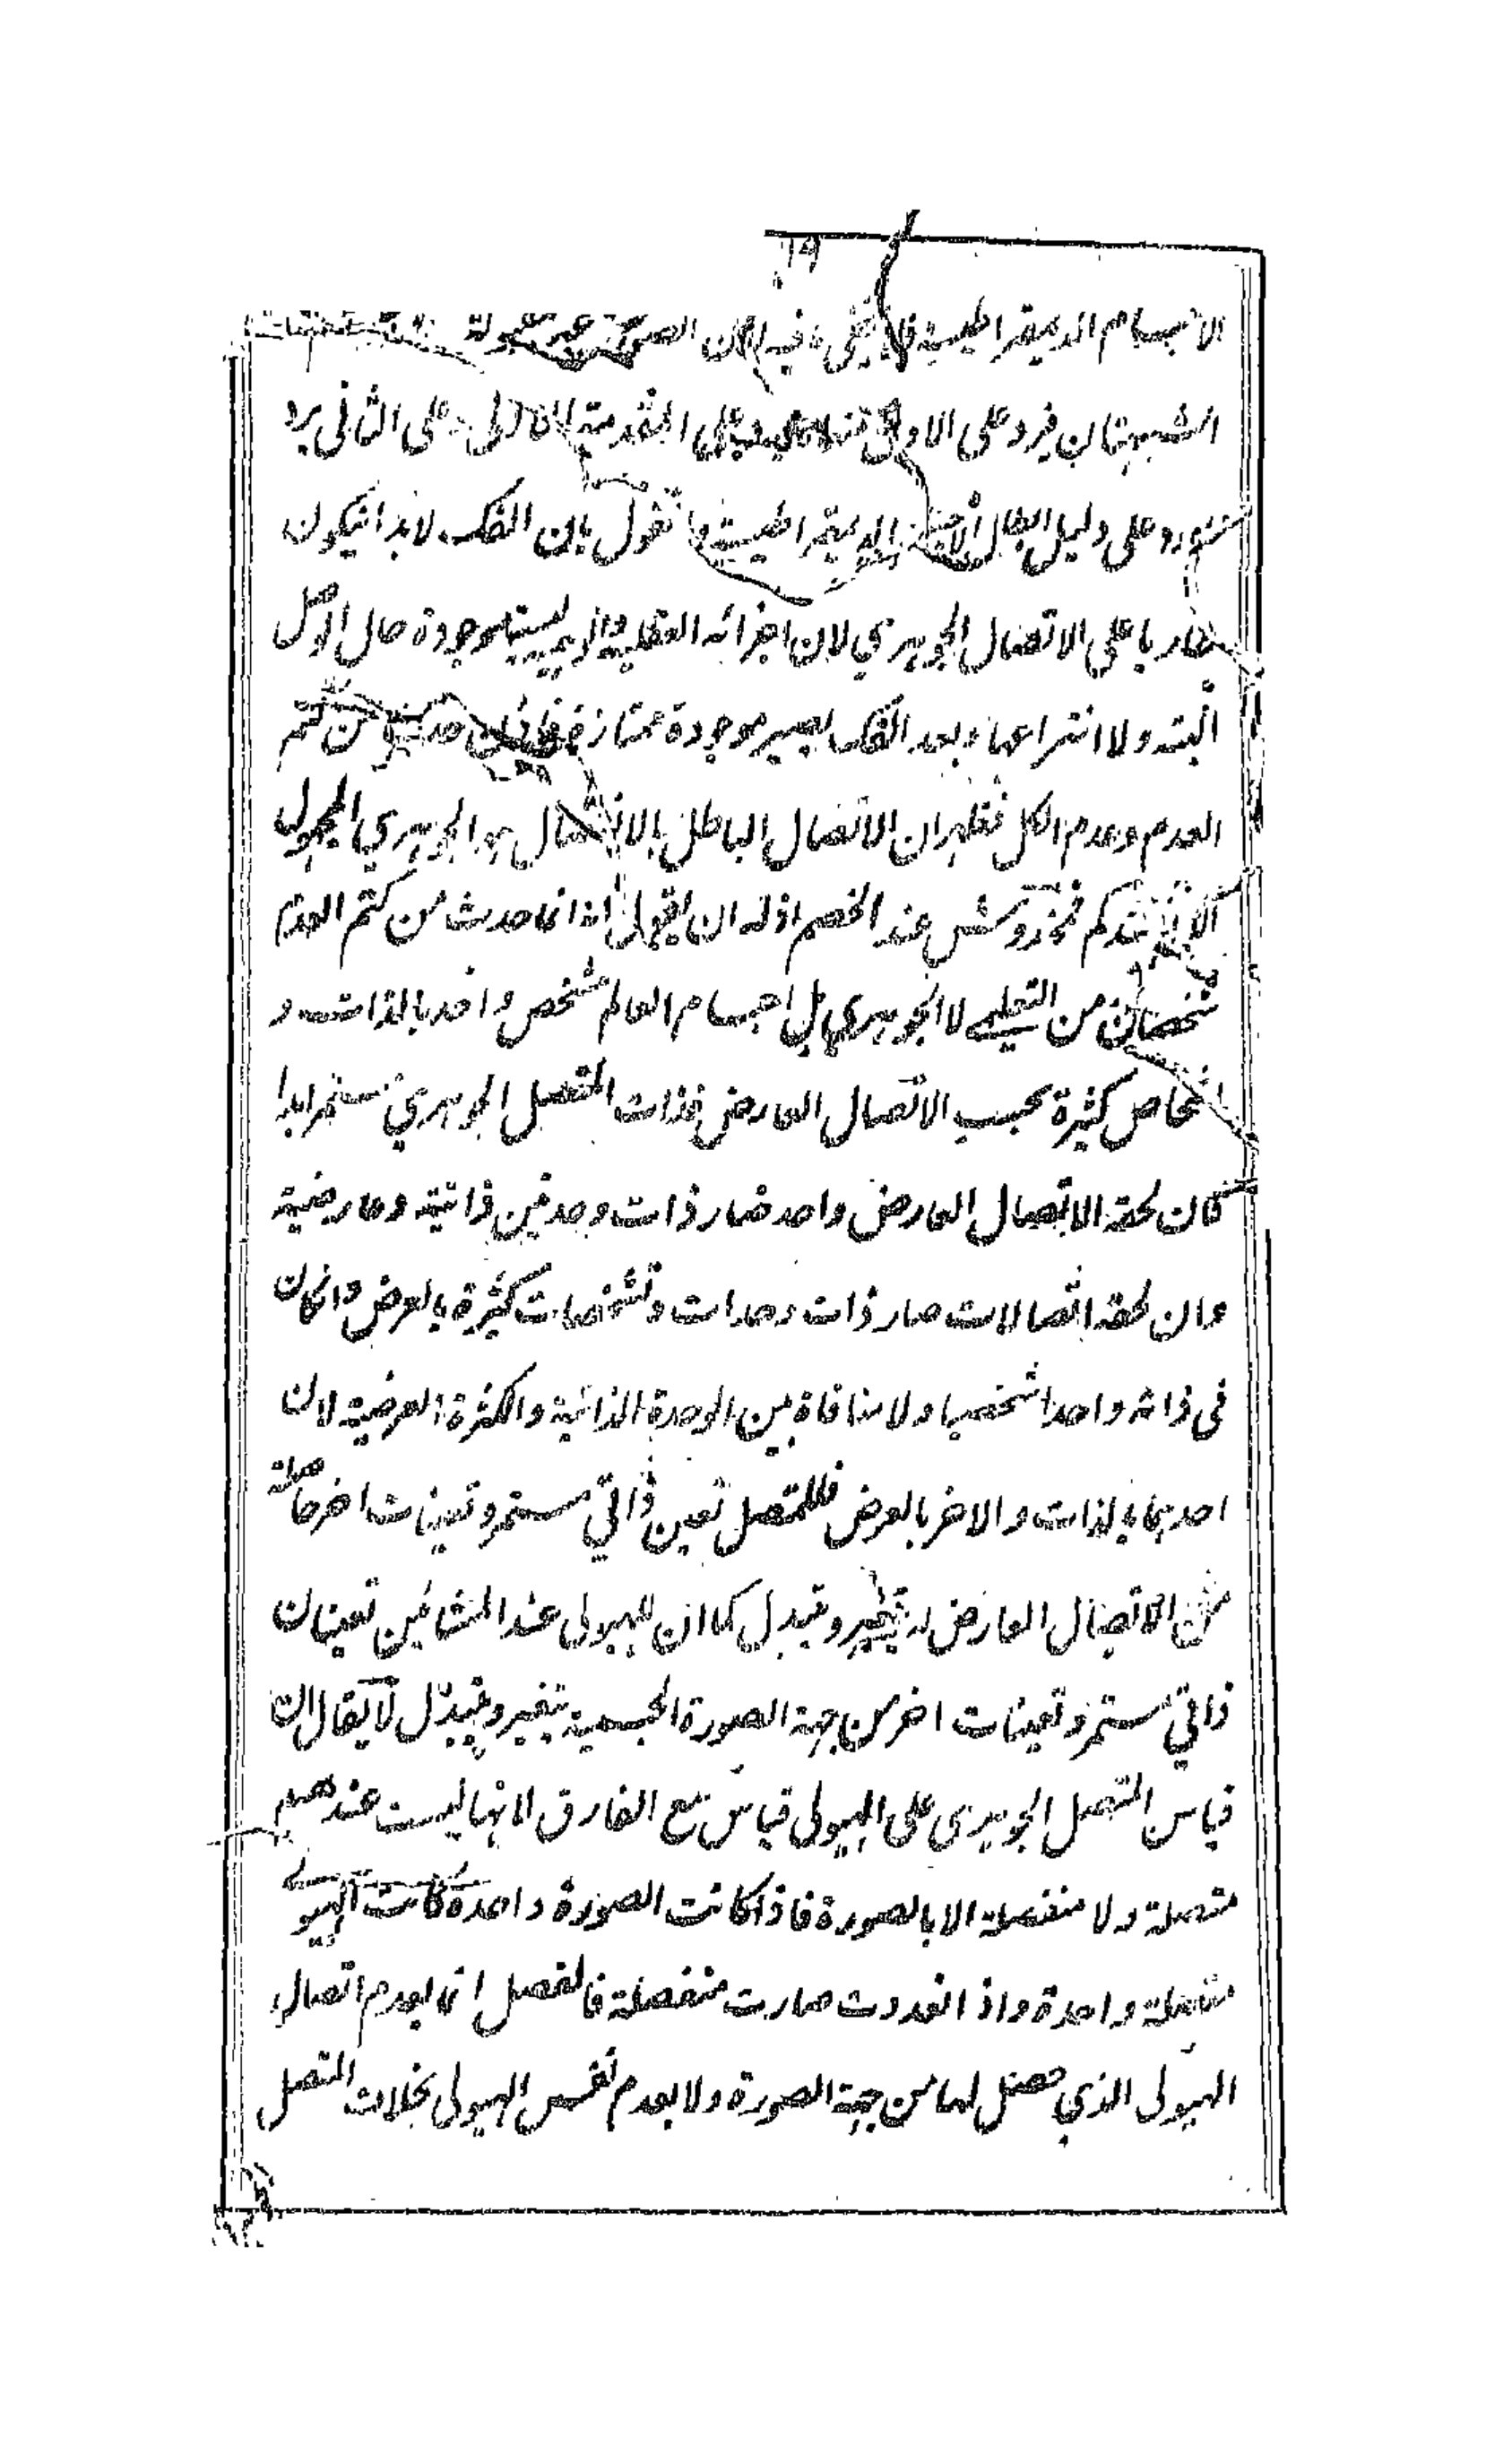 ١٩
الاجسام الديمقراطيسية فلا يخفى ما فيه لان الصورة غير مقبولة
الشبهتان فيرد على الاول على المقدمة الاولى وعلى الثاني يرد
على دليل ابطال الاجسام الديمقراطيسية ما نقول بان الفك لابد ان يكون
طاريا على الاتصال الجوهري لان اجزائه العقلية والوهمية ليست موجودة حال الوصل
البتة ولا انتزاعها وبعد الفك يصير موجودة ممتازة من كتم
العدم وعدم الكل فظهر ان الاتصال الباطل بالانفصال هو الجوهري المجهول
فمخدوش عند الخصم اذ له ان يقول ان ما حدث من كتم العدم
شخصان من التعليمي لا الجوهري بل اجسام العالم شخص واحد بالذات و
اشخاص كثيرة بحسب الاتصال العارض فذات المتصل الجوهري مستمر ابدا
كان لحقه الاتصال العارض واحد فصار ذات وحدتين ذاتية وعارضية
وان لحقه اتصالات صار ذات وحدات وتشخصات كثيرة بالعرض وان كان
في ذاته واحدا شخصيا ولا منافاة بين الوحدة الذاتية والكثرة العرضية لان
احدهما بالذات والاخر بالعرض فللمتصل تعين ذاتي مستمر وتعينات اخر حاصلة
من الاتصال العارض له يتغير ويتبدل كما ان للهيولى عند المشائين تعينان
ذاتي مستمر وتعينات اخر من جهة الصورة الجسمية يتغير ويتبدل لا يقال ان
قياس المتصل الجوهرى على الهيولى قياس مع الفارق لانها ليست عندهم
متصلة ولا منفصلة الا بالصورة فاذا كانت الصورة واحدة كانت الهيولى
متصلة واحدة واذا تعددت صارت منفصلة فالفصل انما يعدم اتصال
الهيولى الذي حصل لها من جهة الصورة ولا يعدم نفس الهيولى بخلاف المتصل